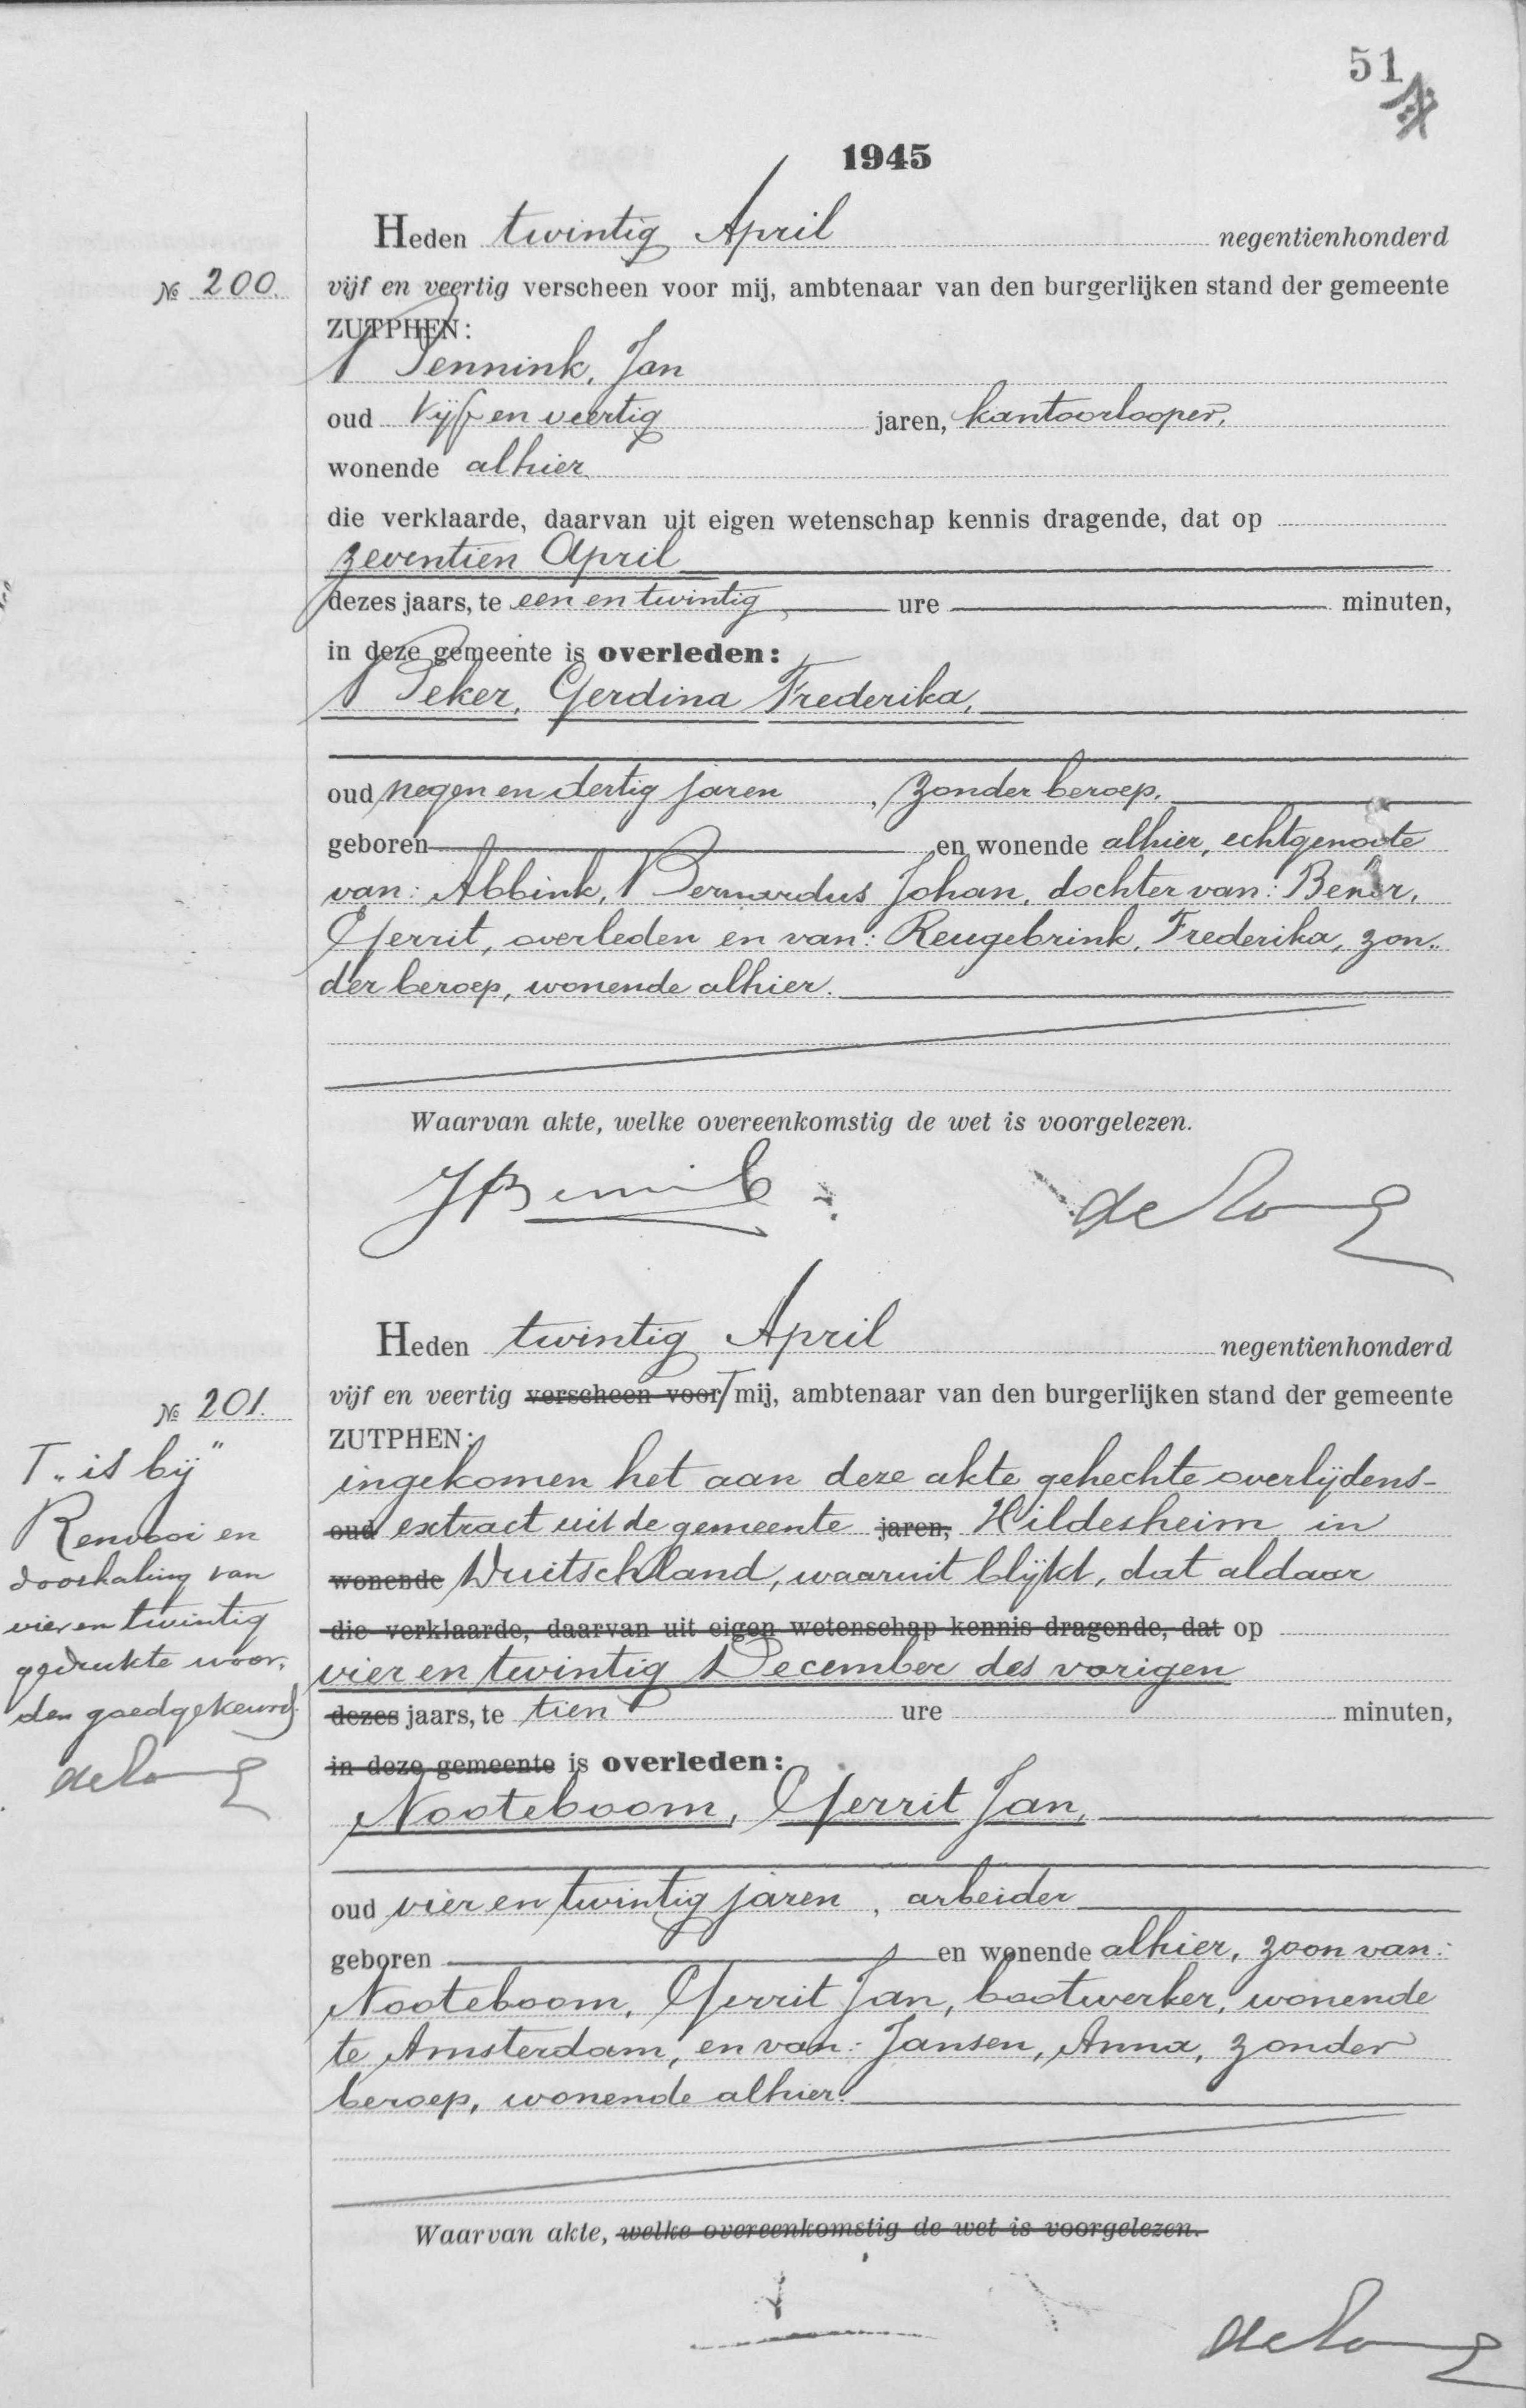 51
1945
Heden twintig April negentienhonderd
№ 200. vijf en veertig verscheen voor mij, ambtenaar van den burgerlijken stand der gemeente
ZUTPHEN:
Bennink, Jan
oud vijf en veertig jaren, kantoorlooper,
wonende alhier
die verklaarde, daarvan uit eigen wetenschap kennis dragende, dat op
zeventien April
dezes jaars, te een en twintig ure minuten,
in deze gemeente is overleden:
Beker, Gerdina Frederika,
oud negen en dertig jaren, zonder beroep,
geboren en wonende alhier, echtgenoote
van: Abbink, Bernardus Johan, dochter van:
Gerrit, overleden en van: Reugebrink, Frederika, zon„
der beroep, wonende alhier.
Waarvan akte, welke overeenkomstig de wet is voorgelezen.
JBennink
Heden twintig April negentienhonderd
№ 201. vijf en veertig verscheen voor T mij, ambtenaar van den burgerlijken stand der gemeente
ZUTPHEN:
ingekomen het aan deze akte gehechte overlijdens-
oud extract uit de gemeente jaren, Hildesheim in
wonende Duitschland, waaruit blijkt, dat aldaar
die verklaarde, daarvan uit eigen wetenschap kennis dragende, dat op
vier en twintig December des vorigen
dezes jaars, te tien ure minuten,
in deze gemeente is overleden:
Nooteboom, Gerrit Jan,
oud vier en twintig jaren, arbeider
geboren en wonende alhier, zoon van:
Nooteboom, Gerrit Jan, bootwerker, wonende
te Amsterdam, en van: Jansen, Anna, zonder
beroep, wonende alhier.
Waarvan akte, welke overeenkomstig de wet is voorgelezen.
T „is bij"
Renvooi en
doorhaling van
vier en twintig
gedrukte woor„
den goedgekeurd.